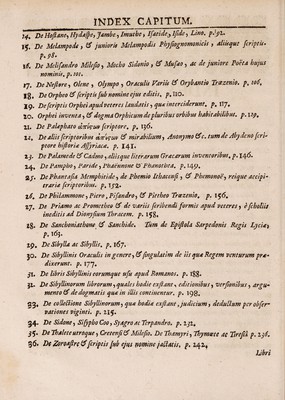 INDEX CAPITUM.
14. De Hostano, Hydaspe, Jambe, Imuthe, Isatide, Iside, Lino. p. 92.
15. De Melampode, & juniore Melampodis Physiognomonicis, aliisque scriptis.
p. 98.
16. De Melisandro Milesio, Mocho Sidonio, & Musæo, ac de juniore Poëta hujus
nominis. p. 101.
17. De Nestore, Oleno, Olympo, Oraculis Variis & Orybantio Trœzenio. p. 106.
18. De Orpheo & scriptis sub nomine ejus editis, p. 110.
19. De scriptis Orphei apud veteres laudatis, quæ interciderunt. p. 117.
20. Orphei inventa, & dogma Orphicum de pluribus orbibus habitabilibus. p. 129.
21. De Palæphato ἀπίςων scriptore. p. 136.
22. De aliis scriptoribus ἀπίςων & mirabilium, Anonymo &c. cum de Abydeno scri-
ptore historiæ Assyriacæ. p. 141.
23. De Palamede & Cadmo, aliisque literarum Græcarum inventoribus. p. 146.
24. De Pampho, Paride, Phaënnone & Phanothea. p. 149.
25. De Phantasia Memphitide, de Phemio Ithacensi, & Phemonoë, reique accipi-
traria scriptoribus. p. 152.
26. De Philammone, Piero, Pisandro, & Pittheo Trœzenio. p. 156.
27. De Priamo ac Prometheo & de variis scribendi formis apud veteres, è scholiis
ineditis ad Dionysium Thracem. p. 158.
28. De Sanchoniathone & Sanchide. Tum de Epistola Serpedonis Regis Lyciæ,
p. 163.
29. De Sibylla ac Sibyllis. p. 167.
30. De Sibyllinis Oraculis in genere, & singulatim de iis quæ Regem venturum præ-
dixerunt. p. 177.
31. De libris Sibyllinis eorumque usu apud Romanos. p. 188.
31. De Sibyllinorum librorum, quales hodie exstant, editionibus, versionibus, argu-
mento & de dogmatis quæ in illis continentur. p. 198.
33. De collectione Sibyllinorum, quæ hodie exstant, judicium, deductum per obser-
vationes viginti. p. 215.
34. De Sidone, Sisypho Coo, Syagro ac Terpandro. p. 232.
35. De Thaleteutroque, Cretensi & Milesio. De Thamyri, Thymœte ac Tiresia p. 236.
36. De Zoroastre & scriptis sub ejus nomine jactatis. p. 242,
Libri